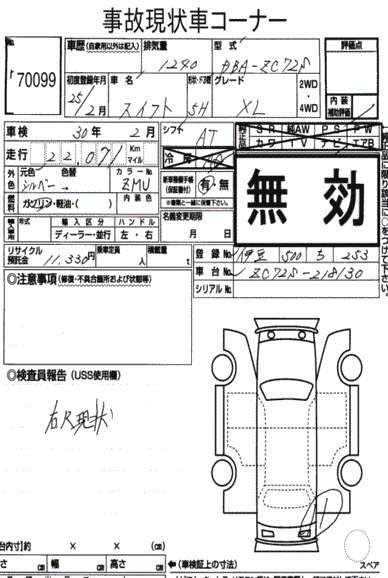 事故現状車コーナー
No. 70099
車歴(自家用以外は記入) 排気量 型式
1240 DBA-ZC72S
評価点
初度登録年月 車名 形状・ドア数 グレード
25年2月 スイフト 5H XL
2WD・4WD
内装補助評価
車検 30年2月
シフト AT
走行 22,071 Km マイル
冷房
純正品 SR 純AW PS PW
カワ TV ナビ エアB
外色 元色 シルバー 色替 カラーNo. ZMU
燃料 ガソリン・軽油・( ) 内装色
新車整備手帳(保証書付) 有・無
※書類と一緒に保管下さい。
無効
名義変更期限 月 日
輸入車 形式 輸入区分 ハンドル
ディーラー・並行 左・右
リサイクル預託金 11,330円
乗車定員 人 積載量 t
登録No. 伊豆 500 ち 253
車台No. ZC72S-218130
シリアルNo.
◎注意事項(修復・不具合箇所および状態等)
◎検査員報告(USS使用欄)
右R現状
台内寸)約 × × (㎝)
さ ㎝ 幅 ㎝ 高さ ㎝
←(車検証上の寸法)
スペア